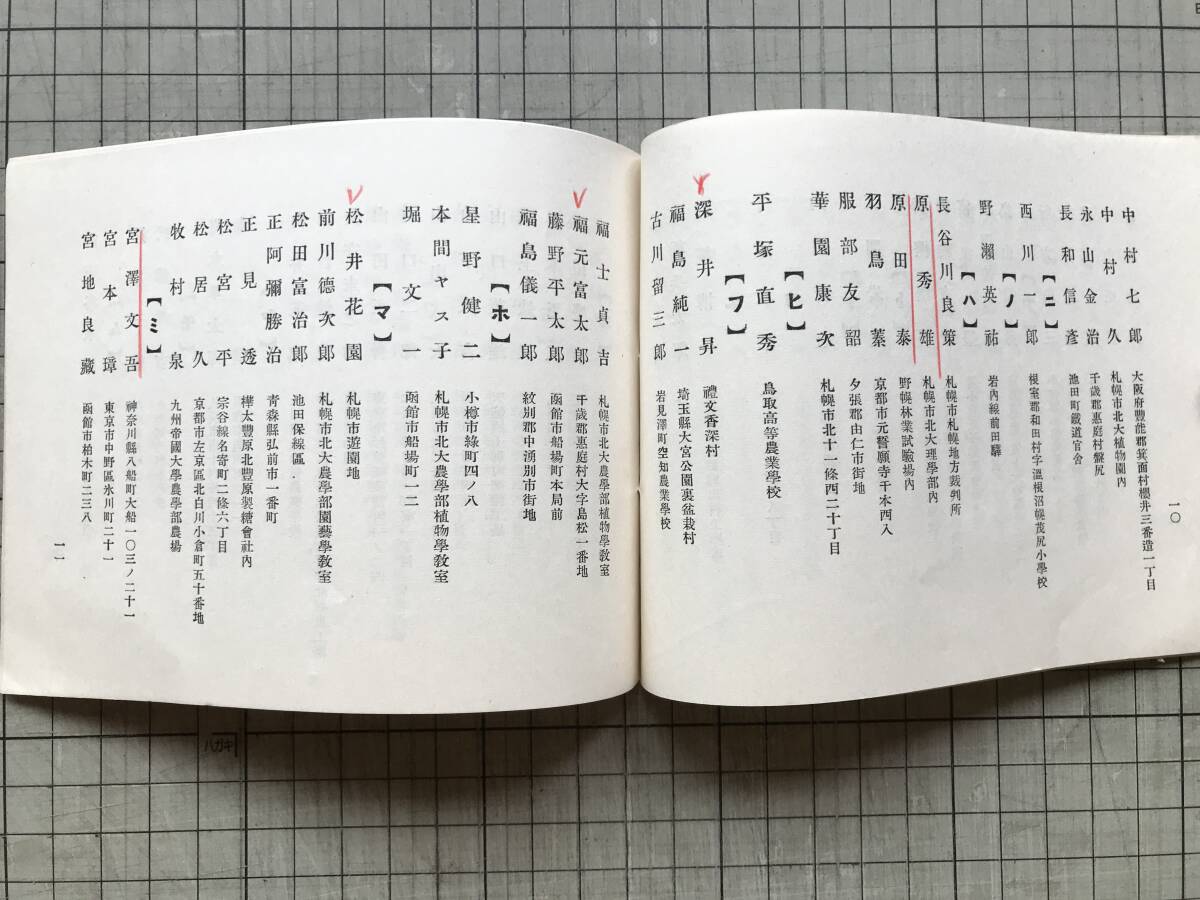 中村七郎 大阪府豊能郡箕面村櫻井三番造一丁目
中村久 札幌市北大植物園內
永山金治 千歲郡惠庭村盤尻
長和信彥 池田町鐵道官舍
【ニ】
西川一郎 根室郡和田村字溫根沼幌茂尻小學校
【ノ】
野瀨英祐 岩內線前田驛
【ハ】
長谷川良策 札幌市札幌地方裁判所
原秀雄 札幌市北大理學部內
原田泰 野幌林業試驗場內
羽鳥蓁 京都市元誓願寺千本西入
服部友韶 夕張郡由仁市街地
華園康次 札幌市北十一條西二十丁目
【ヒ】
平塚直秀 鳥取高等農業學校
【フ】
深井昇 禮文香深村
福島純一 埼玉縣大宮公園裏盆栽村
古川留三郎 岩見澤町空知農業學校
一〇
福士貞吉 札幌市北大農學部植物學教室
福元富太郎 千歲郡惠庭村大字島松一番地
藤野平太郎 函館市船場町本局前
福島儀一郎 紋別郡中湧別市街地
【ホ】
星野健二 小樽市綠町四ノ八
本間ヤス子 札幌市北大農學部植物學教室
堀文一 函館市船場町一二
【マ】
松井花園 札幌市遊園地
前川德次郎 札幌市北大農學部園藝學教室
松田富治郎 池田保線區
正阿彌勝治 靑森縣弘前市一番町
正見透 樺太豐原北豐原製糖會社內
松宮平 宗谷線名寄町二條六丁目
松居久 京都市左京區北白川小倉町五十番地
牧村泉 九州帝國大學農學部農場
【ミ】
宮澤文吾 神奈川縣八船町大船一〇三ノ二十一
宮本璋 東京市中野區氷川町二十一
宮地良藏 函館市柏木町二三八
一一
ハガキ